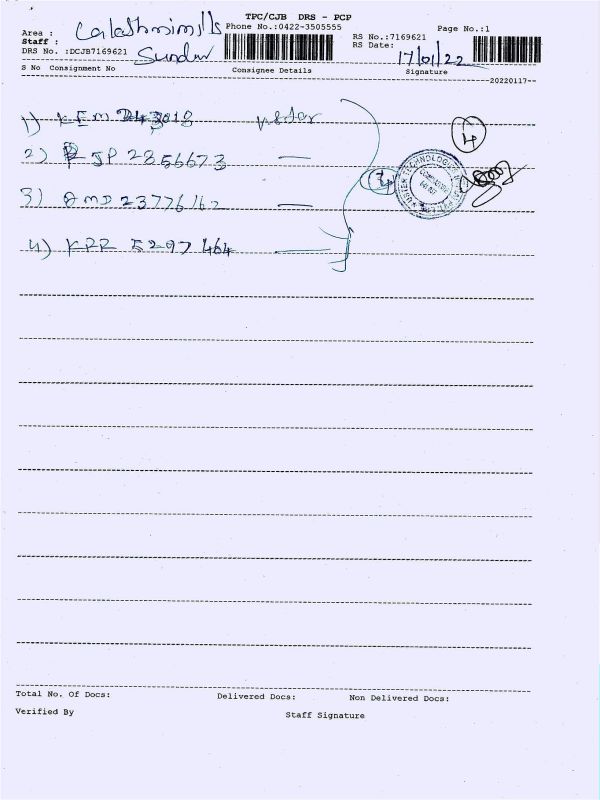 TPC/CJB DRS - PCP
Area : Lalakshmimills Phone No.:0422-3505555 Page No.:1
Staff : Sundar RS No.:7169621
DRS No. :DCJB7169621 RS Date: 17/01/22
S No Consignment No Consignee Details Signature
--20220117--
1) KEM
2) RJP 2856673 —
3) 23776162 —
4) KRR 5297464 —
4
Total No. Of Docs: Delivered Docs: Non Delivered Docs:
Verified By Staff Signature